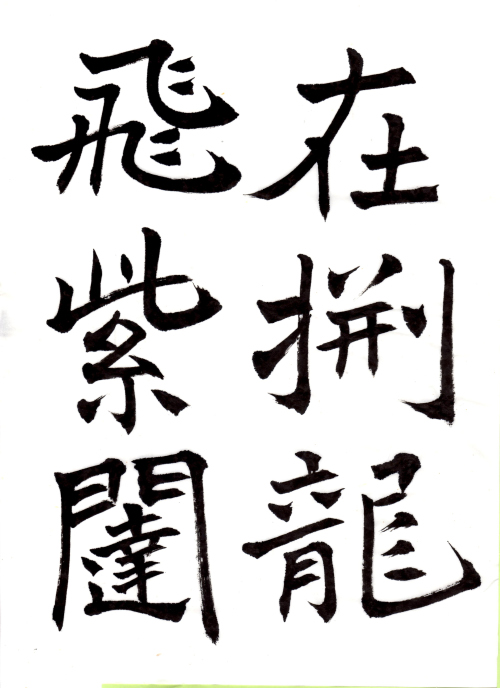 在龍
飛紫闥